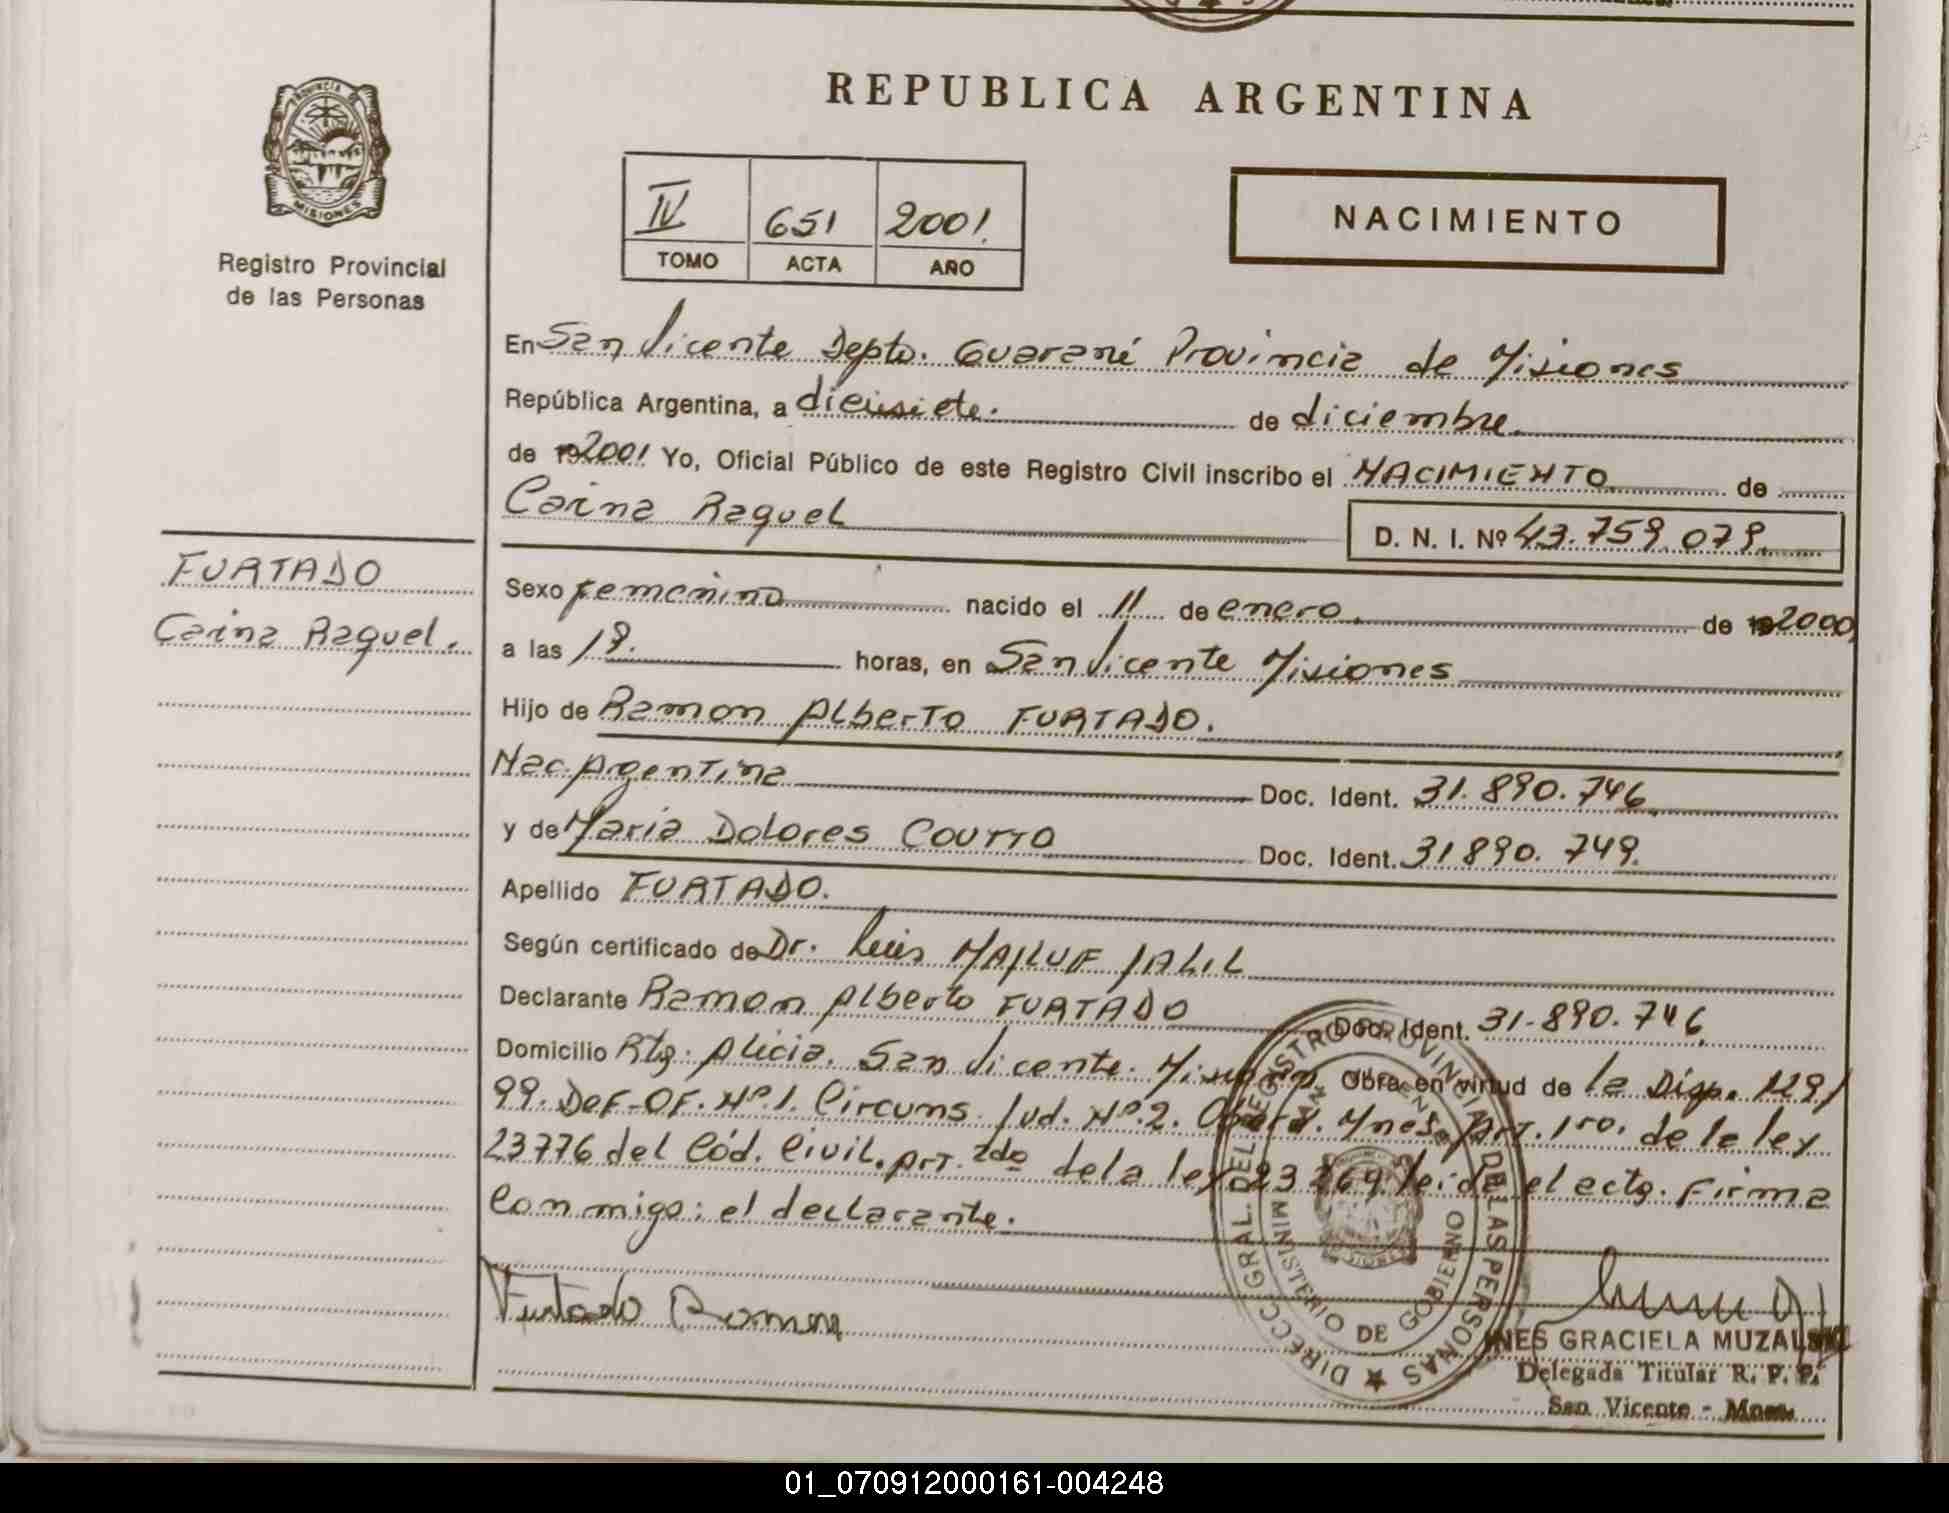 REPUBLICA ARGENTINA
PROVINCIA DE
MISIONES
Registro Provincial
de las Personas
IV 651 2001.
TOMO ACTA AÑO
NACIMIENTO
En San Vicente Depto. Guaraní Provincia de Misiones
República Argentina, a diecisiete. de diciembre.
de 192001 Yo, Oficial Público de este Registro Civil inscribo el NACIMIENTO de
Carina Raquel
D. N. I. Nº 43.759.079.
FURTADO
Carina Raquel.
Sexo femenino nacido el 11 de enero. de 192000,
a las 19. horas, en San Vicente Misiones
Hijo de Ramon Alberto FURTADO.
Nac. Argentina Doc. Ident. 31.890.746.
y de Maria Dolores COUTTO Doc. Ident. 31890.749.
Apellido FURTADO.
Según certificado de Dr. Luis MAJLUF JALIL
Declarante Ramon Alberto FURTADO Doc. Ident. 31-890.746.
Domicilio Pto. Alicia. San Vicente. Misiones Obra en virtud de la Disp. 129/
99. DEF-OF. Nº.1. Circuns. Jud. Nº.2. Oberá. Mnes. Art. 1ro. de la ley
23776 del Cód. Civil. Art. 2do de la ley 23264 leida el acta. Firma
Conmigo: el declarante.
Furtado Ramon
DIRECC. GRAL. DEL REGISTRO PROVINCIAL DE LAS PERSONAS
MINISTERIO DE GOBIERNO
INES GRACIELA MUZALSKI
Delegada Titular R. P. P.
San Vicente - Mnes.
01_070912000161-004248